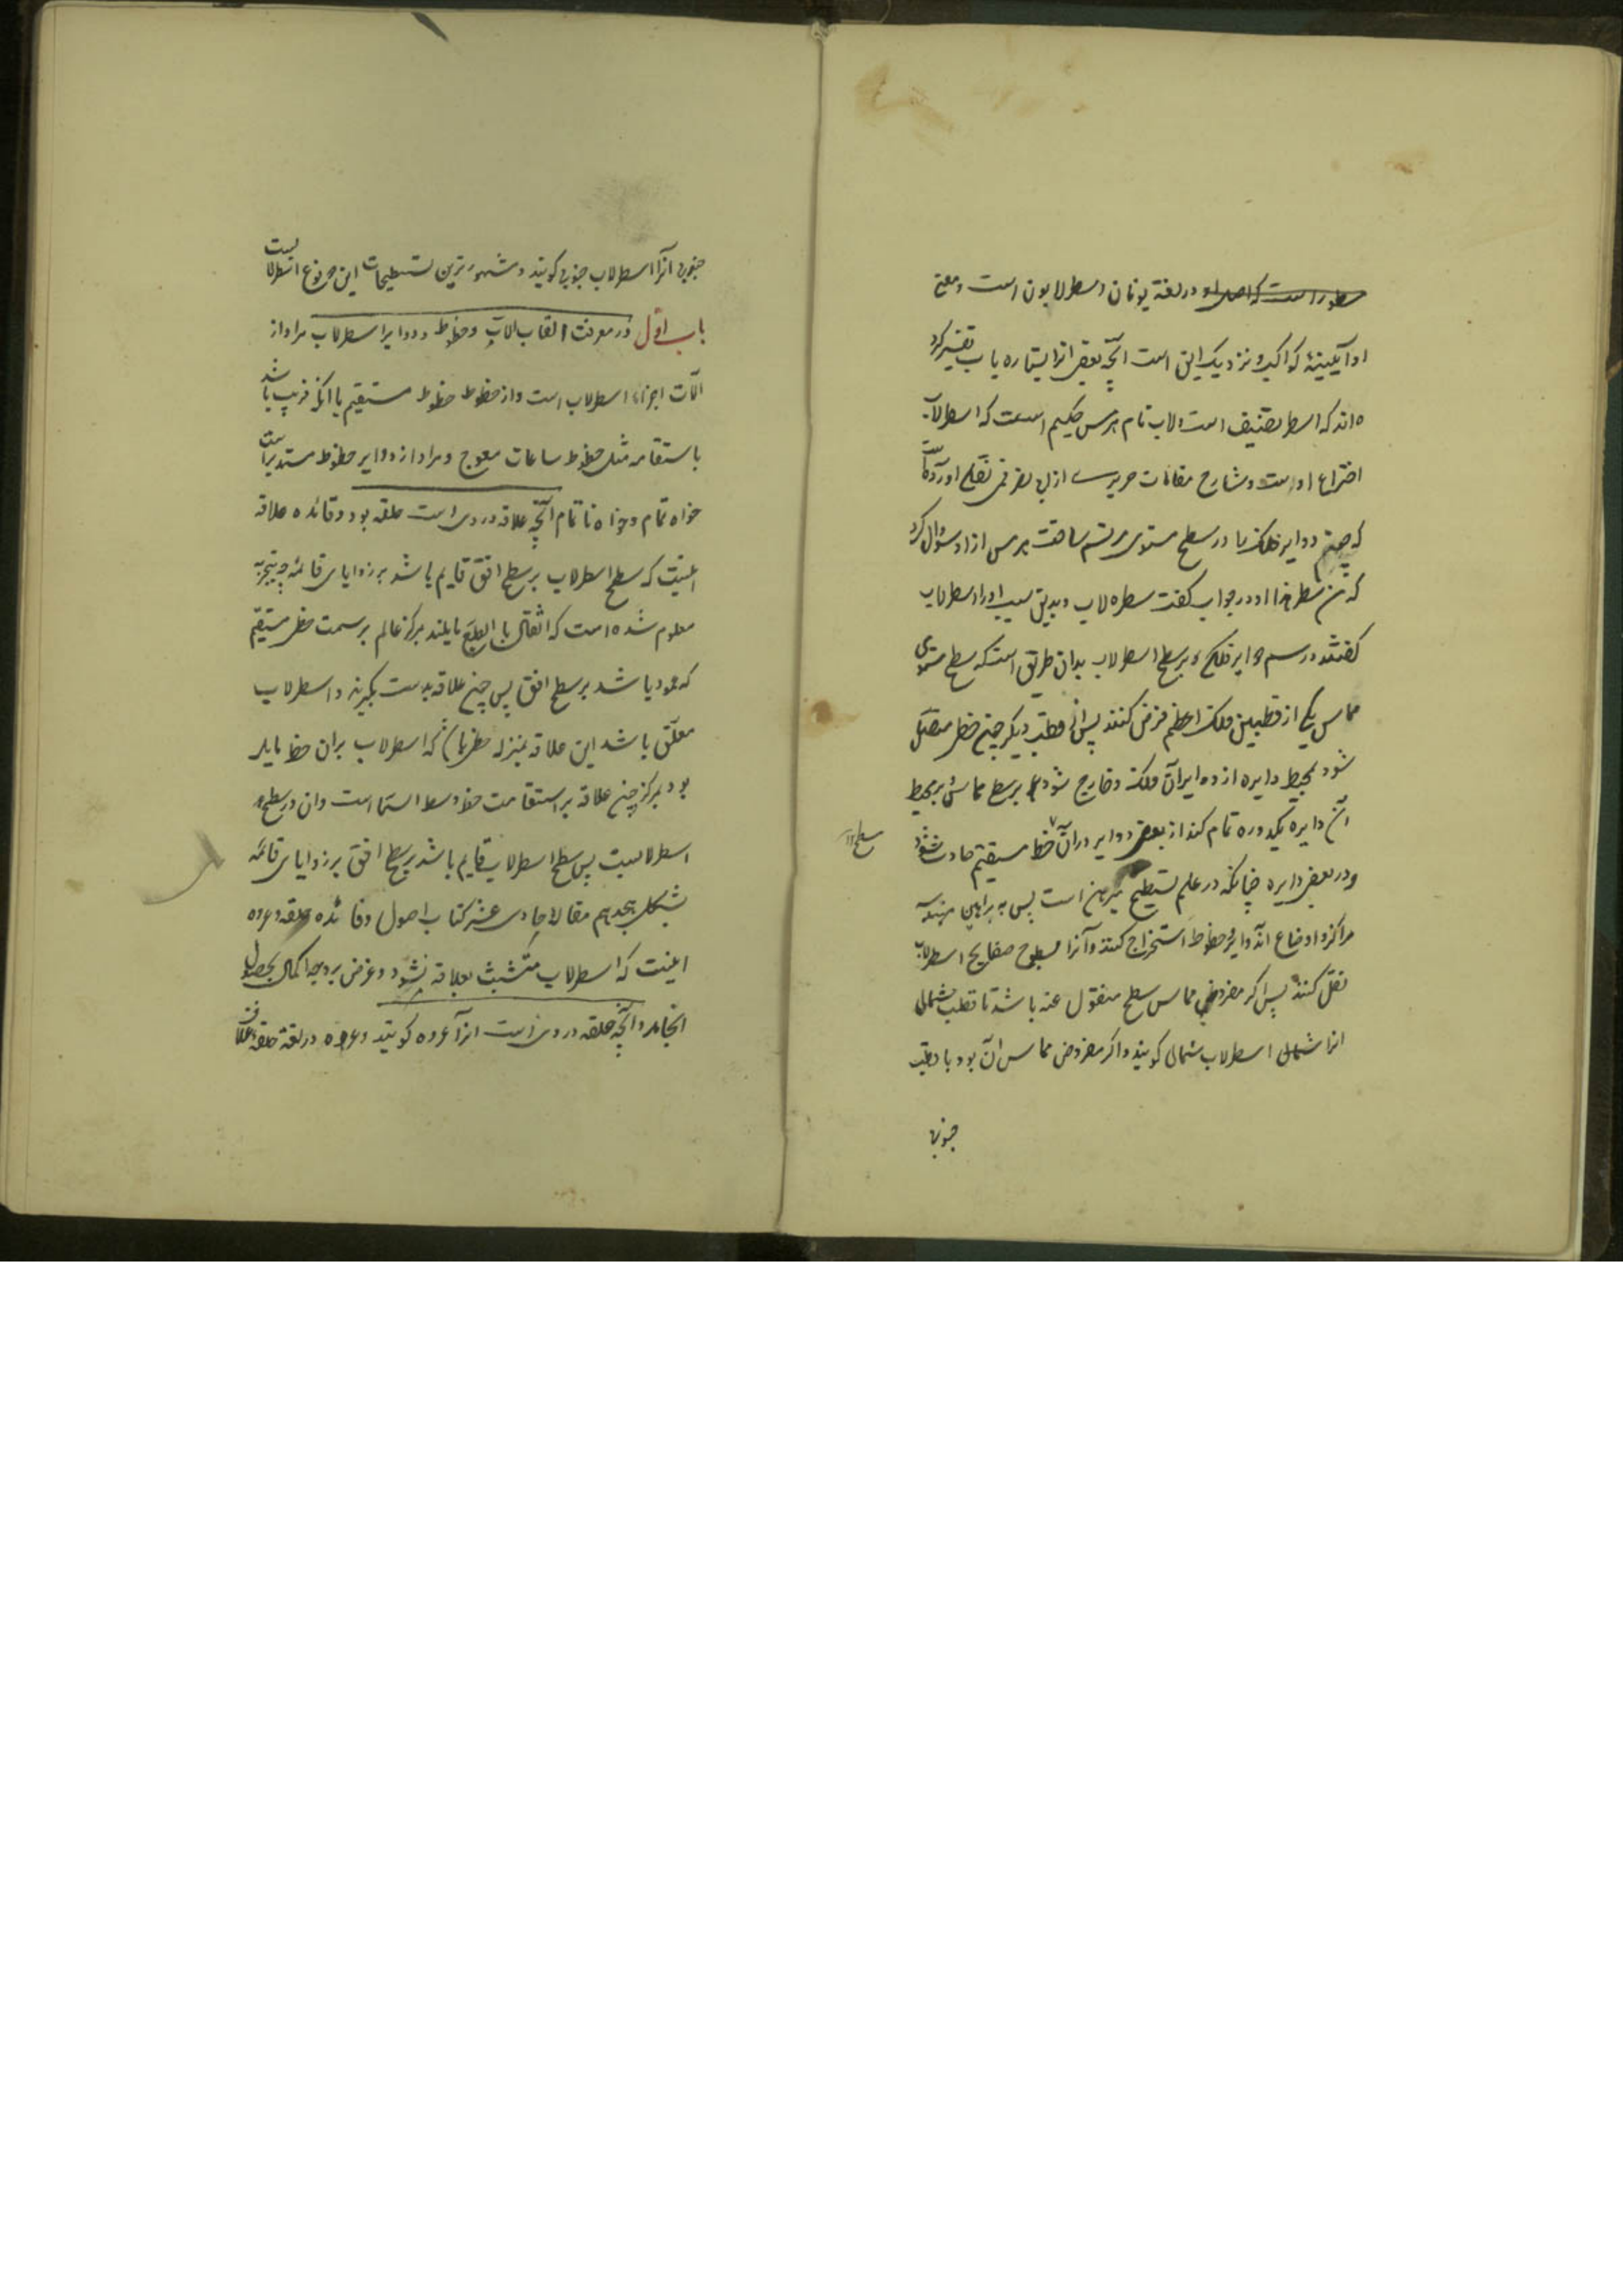 سطور است که اصل او در لغة یونان اسطرلابون است و معنی
او آیینهٔ کواکب و نزدیک این است آنچه بعضی انرا بستاره یاب تفسیر کرد
ه اند که اسطر تصنیف است و لاب نام هرمس حکیم است که اسطرلاب
اختراع اوست و شارح مقامات حریری از ابی نصر قمی نقل آورده است
که چون دوایر فلک را در سطح مستوی مرتسم ساخت هرمس از او سؤال کرد
که من سطر هذا او در جواب گفت سطره لاب و بدین سبب او را اسطرلاب
گفتند و رسم دوایر فلکی بر سطح اسطرلاب بدان طریق است که سطح مستوی
مماس یکی از قطبین فلک اعظم فرض کنند پس از قطب دیگر چون خطی متصل
شود بمحیط دایره از دوایر آن فلک و خارج شود بر سطح مماس بر محیط
آن دایره یکدوره تمام کند از بعضی دوایر در آن خط مستقیم حادث شود
سطح
و در بعضی دایره چنانکه در علم تسطیح مبرهن است پس به براهین هندسیه
مراکز و اوضاع آن دوایر و خطوط استخراج کنند و آنرا بسطوح صفایح اسطرلاب
نقل کنند پس اگر مفروض مماس سطح منقول عنه باشد تا قطب شمالی
انرا شمالی اسطرلاب شمالی گویند و اگر مفروض مماس آن بود با قطب
جنوبی
جنوبی آنرا اسطرلاب جنوبی گویند و مشهورترین تسطیحات این دو نوع اسطرلابست
باب اول در معرفت القاب الات و خطوط و دوایر اسطرلاب مراد از
الات اجزاء اسطرلاب است و از خطوط خطوط مستقیم یا آنکه قریب باشد
باستقامه مثل خطوط ساعات معوج و مراد از دوایر خطوط مستدیر است
خواه تمام و خواه ناتمام آنچه علاقه در وی است حلقه بود و فائده علاقه
اینست که سطح اسطرلاب بر سطح افق قایم باشد بر زوایای قائمه چه بتجربه
معلوم شده است که اثقال بالطبع مایلند بمرکز عالم بر سمت خطی مستقیم
که عمود باشد بر سطح افق پس چون علاقه بدست بگیرند و اسطرلاب
معلق باشد این علاقه بمنزله خطی باشد که اسطرلاب بران خط مایل
بود بمرکز چون علاقه بر استقامت خط وسط السما است وان در سطح
اسطرلابست پس سطح اسطرلاب قایم باشد بر سطح افق بر زوایای قائمه
بشکل هجدهم مقالهٔ حادی عشر کتاب اصول و فائده حلقه و عروه
اینست که اسطرلاب متشبث بعلاقه نشود و غرض بر وجه اکمال بحصول
انجامد و آنچه حلقه در وی است انرا عروه گویند و عروه در لغة حلقهٔ